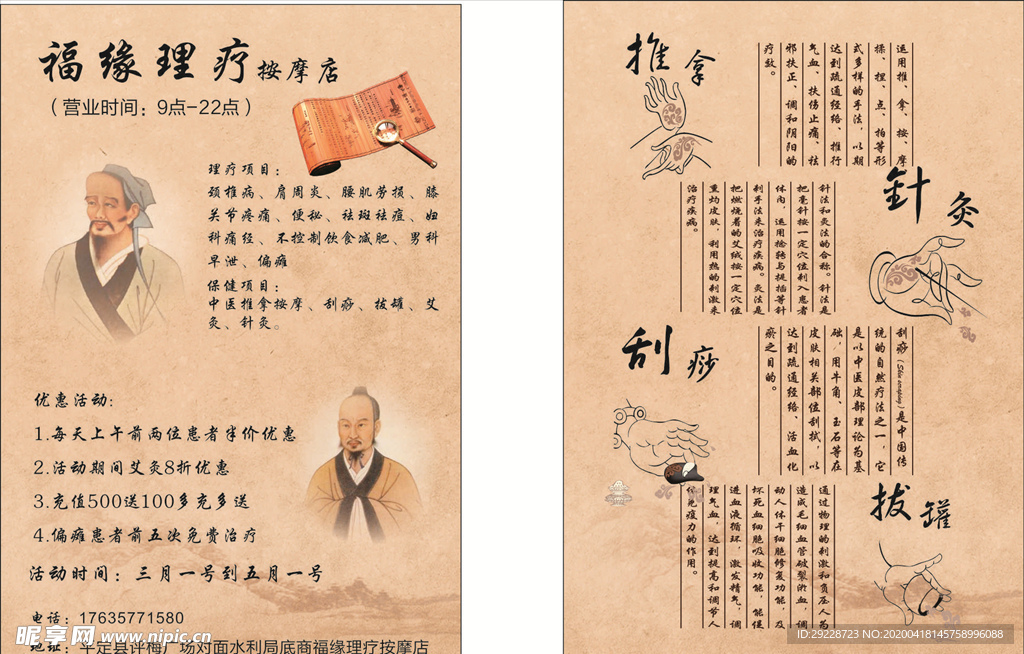 福缘理疗按摩店
（营业时间：9点-22点）
理疗项目：
颈椎病、肩周炎、腰肌劳损、膝
关节疼痛、便秘、祛斑祛痘、妇
科痛经、不控制饮食减肥、男科
早泄、偏瘫
保健项目：
中医推拿按摩、刮痧、拔罐、艾
灸、针灸。
优惠活动：
1.每天上午前两位患者半价优惠
2.活动期间艾灸8折优惠
3.充值500送100多充多送
4.偏瘫患者前五次免费治疗
活动时间：三月一号到五月一号
电话：17635771580
地址：平定县评梅广场对面水利局底商福缘理疗按摩店
昵享网 www.nipic.cn
推拿
运用推、拿、按、摩、
揉、捏、点、拍等形
式多样的手法，以期
达到疏通经络、推行
气血、扶伤止痛、祛
邪扶正、调和阴阳的
疗效。
針灸
针法和灸法的合称。针法是
把毫针按一定穴位刺入患者
体内，运用捻转与提插等针
刺手法来治疗疾病。灸法是
把燃烧着的艾绒按一定穴位
熏灼皮肤，利用热的刺激来
治疗疾病。
刮痧
刮痧（）是中国传
统的自然疗法之一，它
是以中医皮部理论为基
础，用牛角、玉石等在
皮肤相关部位刮拭，以
达到疏通经络、活血化
瘀之目的。
拔罐
通过物理的刺激和负压人为
造成毛细血管破裂淤血，调
动人体干细胞修复功能，及
坏死血细胞吸收功能，能促
进血液循环，激发精气，调
理气血，达到提高和调节人
体免疫力的作用。
ID:29228723 NO:20200418145758996088